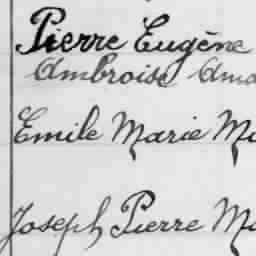 Pierre Eugène
Ambroise
Emile Marie
Joseph Pierre